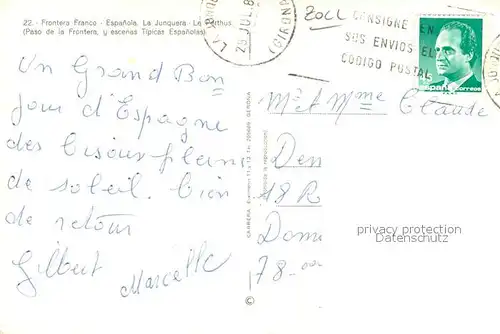 22. - Frontera Franco - Española. La Junquera - Le Perthus.
(Paso de la Frontera, y escenas Típicas Españolas)
LA JUNQUERA
28 JUL 8
(GIRONA)
Zoll
CONSIGNE EN
SUS ENVIOS EL
CODIGO POSTAL
España correos
Un Grand Bon
jour d'Espagne
des bisous pleins
de soleil. bien
de retour
Gilbert
Marcelle
Mr & Mme Claude
Den
18 R
Dom
78
privacy protection
Datenschutz
©